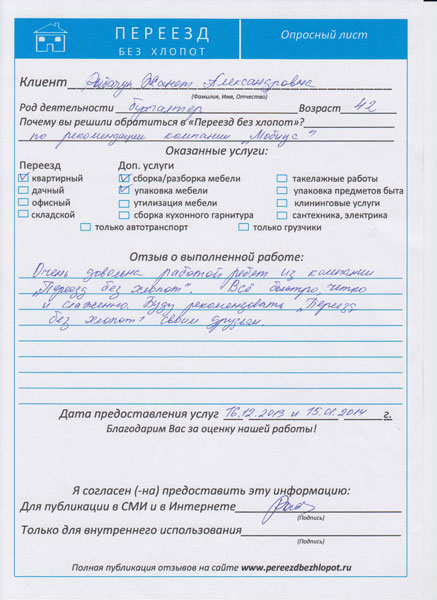 ПЕРЕЕЗД
БЕЗ ХЛОПОТ
Опросный лист
Клиент Жанет Александровна
(Фамилия, Имя, Отчество)
Род деятельности бухгалтер Возраст 42
Почему вы решили обратиться в «Переезд без хлопот»?
по рекомендации компании „Мобиус"
Оказанные услуги:
Переезд Доп. услуги
квартирный сборка/разборка мебели такелажные работы
дачный упаковка мебели упаковка предметов быта
офисный утилизация мебели клининговые услуги
складской сборка кухонного гарнитура сантехника, электрика
только автотранспорт только грузчики
Отзыв о выполненной работе:
Очень довольна работой ребят из компании
„Переезд без хлопот". Всё быстро, четко
и слаженно. Буду рекомендовать „Переезд
без хлопот" своим друзьям.
Дата предоставления услуг 16.12.2013 и 15.01.2014 г.
Благодарим Вас за оценку нашей работы!
Я согласен (-на) предоставить эту информацию:
Для публикации в СМИ и в Интернете
(Подпись)
Только для внутреннего использования
(Подпись)
Полная публикация отзывов на сайте www.pereezdbezhlopot.ru